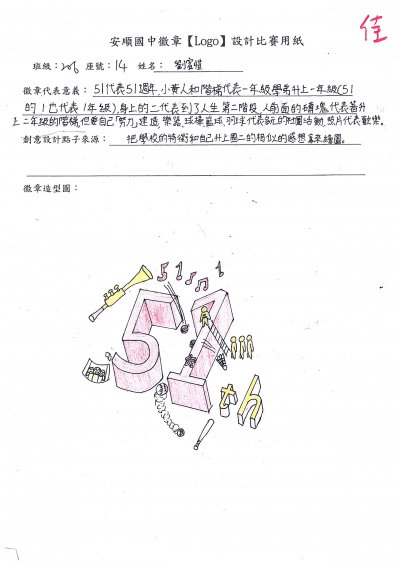 安順國中徽章【Logo】設計比賽用紙
佳
班級：206 座號：14 姓名：劉
徽章代表意義：51代表51週年，小黃人和階梯代表一年級學弟升上一年級(51
的1也代表1年級)，身上的二代表到了人生第二階段，人前面的磚塊代表著升
上二年級的階梯，但要自己「努力」建造，樂器、球棒、籃球、羽球代表玩的社團活動，照片代表歡樂。
創意設計點子來源：把學校的特術和自己升上國二的相似的感想拿來繪圖。
徽章造型圖：
51
51th